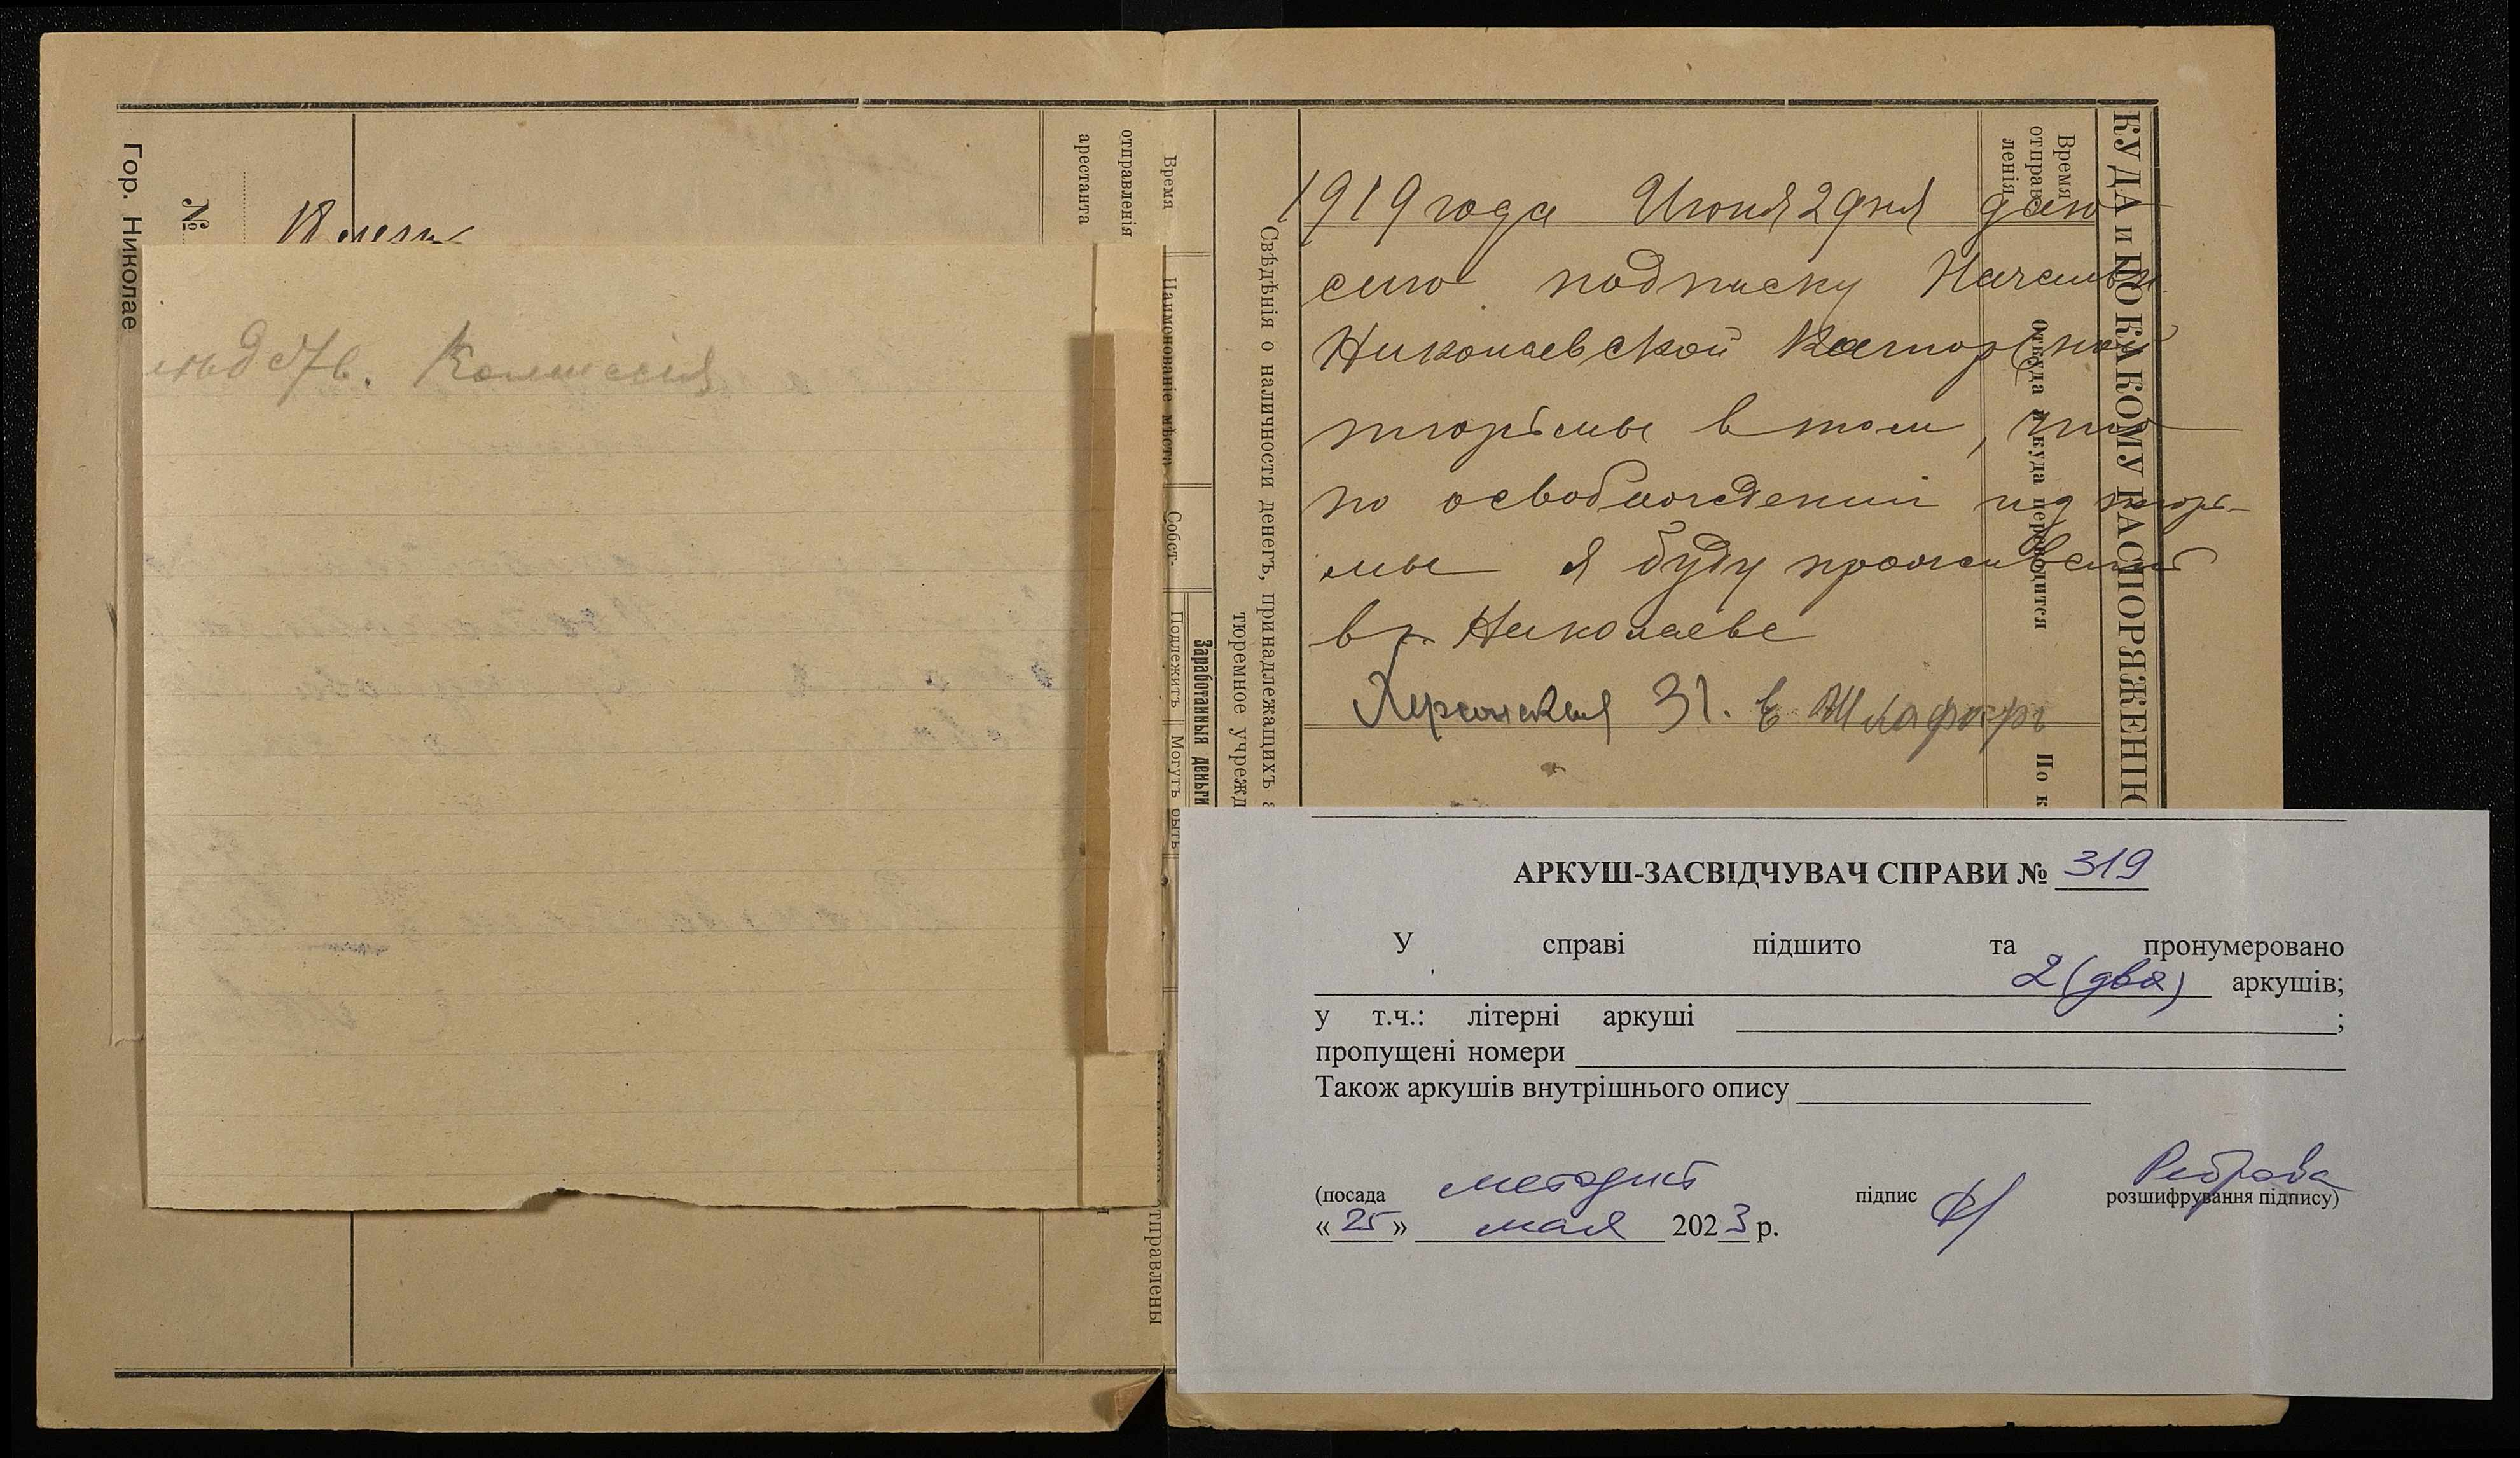 Гор. Николае
№
Время
отправленія
арестанта
Наименованіе мѣста
Собст-
Заработанныя деньги
Подлежитъ
Могутъ быть
отправлены
Свѣдѣнія о наличности денегъ, принадлежащихъ а
тюремное учрежд
КУДА и ПО КАКОМУ РАСПОРЯЖЕНІЮ
Время
отправ-
ленія
Откуда и куда переводится
По к
Комиссія
1919 года Июня 2 дня даю
сию подписку Начальн.
Николаевской Каторжной
тюрьмы в том, что
по освобождении из тюрь-
мы я буду проживать
в г. Николаеве
Херсонская 31. в
АРКУШ-ЗАСВІДЧУВАЧ СПРАВИ № 319
У справі підшито та пронумеровано
2 (два) аркушів;
у т.ч.: літерні аркуші ;
пропущені номери
Також аркушів внутрішнього опису
(посада методист підпис Реброва розшифрування підпису)
« 25 » мая 2023 р.